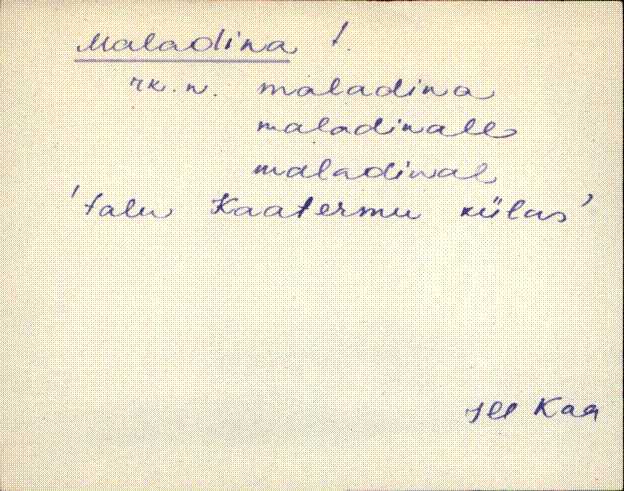 Maladina t.
rk. n. maladina
maladinalle
maladinal
'talu Kaatermu külas'
Jll Kaa